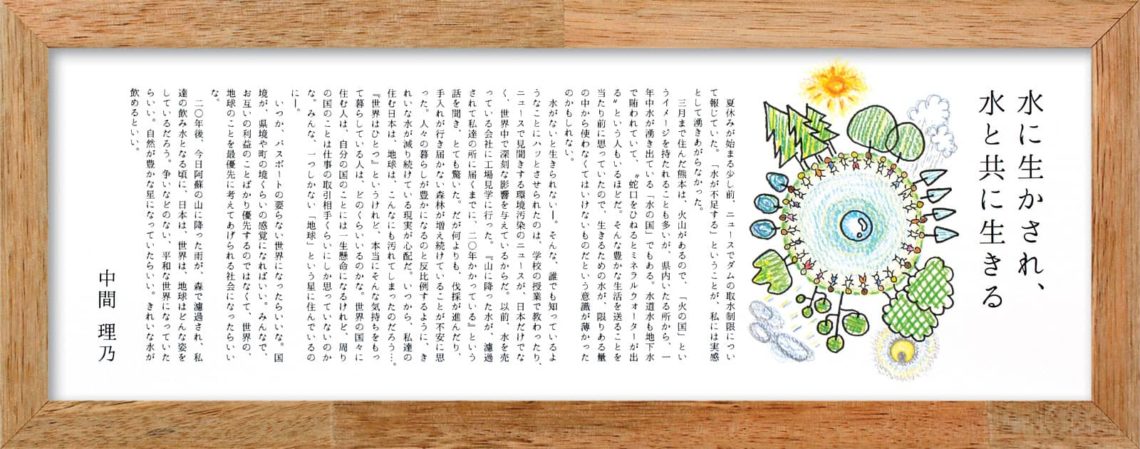 水に生かされ、
水と共に生きる
夏休みが始まる少し前、ニュースでダムの取水制限につい
て報じていた。「水が不足する」ということが、私には実感
として湧きあがらなかった。
三月まで住んだ熊本は、火山があるので、「火の国」とい
うイメージを持たれることも多いが、県内いたる所から、一
年中水が湧き出ている「水の国」でもある。水道水も地下水
で賄われていて、〝蛇口をひねるとミネラルウォーターが出
る〟という人もいるほどだ。そんな豊かな生活を送ることを
当たり前に思っていたので、生きるための水が、限りある量
の中から使わなくてはいけないものだという意識が薄かった
のかもしれない。
水がないと生きられない―。そんな、誰でも知っているよ
うなことにハッとさせられたのは、学校の授業で教わったり、
ニュースで見聞きする環境汚染のニュースが、日本だけでな
く、世界中で深刻な影響を与えているからだ。以前、水を売
っている会社に工場見学に行った。『山に降った水が、濾過
されて私達の所に届くまでに、二〇年かかっている』という
話を聞き、とても驚いた。だが何よりも、伐採が進んだり、
手入れが行き届かない森林が増え続けていることが不安に思
った。人々の暮らしが豊かになるのと反比例するように、き
れいな水が減り続けている現実が心配だ。いつから、私達の
住む日本は、地球は、こんなにも汚れてしまったのだろう…。
『世界はひとつ』というけれど、本当にそんな気持ちをもっ
て暮らしている人は、どのくらいいるのかな。世界の国々に
住む人は、自分の国のことには一生懸命になるけれど、周り
の国のことは仕事の取引相手くらいにしか思っていないのか
な。みんな、一つしかない「地球」という星に住んでいるの
に―。
いつか、パスポートの要らない世界になったらいいな。国
境が、県境や町の境くらいの感覚になればいい。みんなで、
お互いの利益のことばかり優先するのではなくて、世界の、
地球のことを最優先に考えてあげられる社会になったらいい
な。
二〇年後、今日阿蘇の山に降った雨が、森で濾過され、私
達の飲み水となる頃に、日本は、世界は、地球はどんな姿を
しているだろう。争いなどのない、平和な世界になっていた
らいい。自然が豊かな星になっていたらいい。きれいな水が
飲めるといい。
中間 理乃